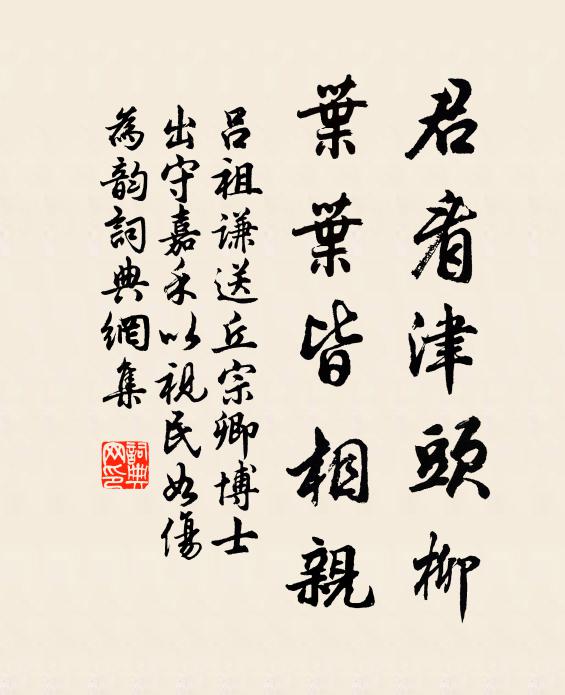 君看津頭柳
葉葉皆相親
呂祖謙送丘宗卿博士
出守嘉禾以視民如傷
為韵詞典網集
詞典
网印